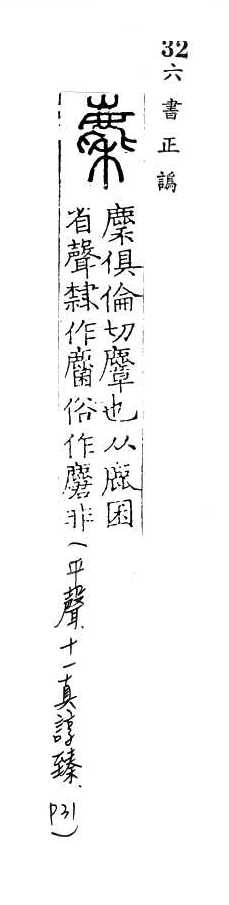 32
六書正譌
麇俱倫切麞也从鹿囷
省聲隸作麕俗作麏非
(平聲.十一真諄臻.P31)